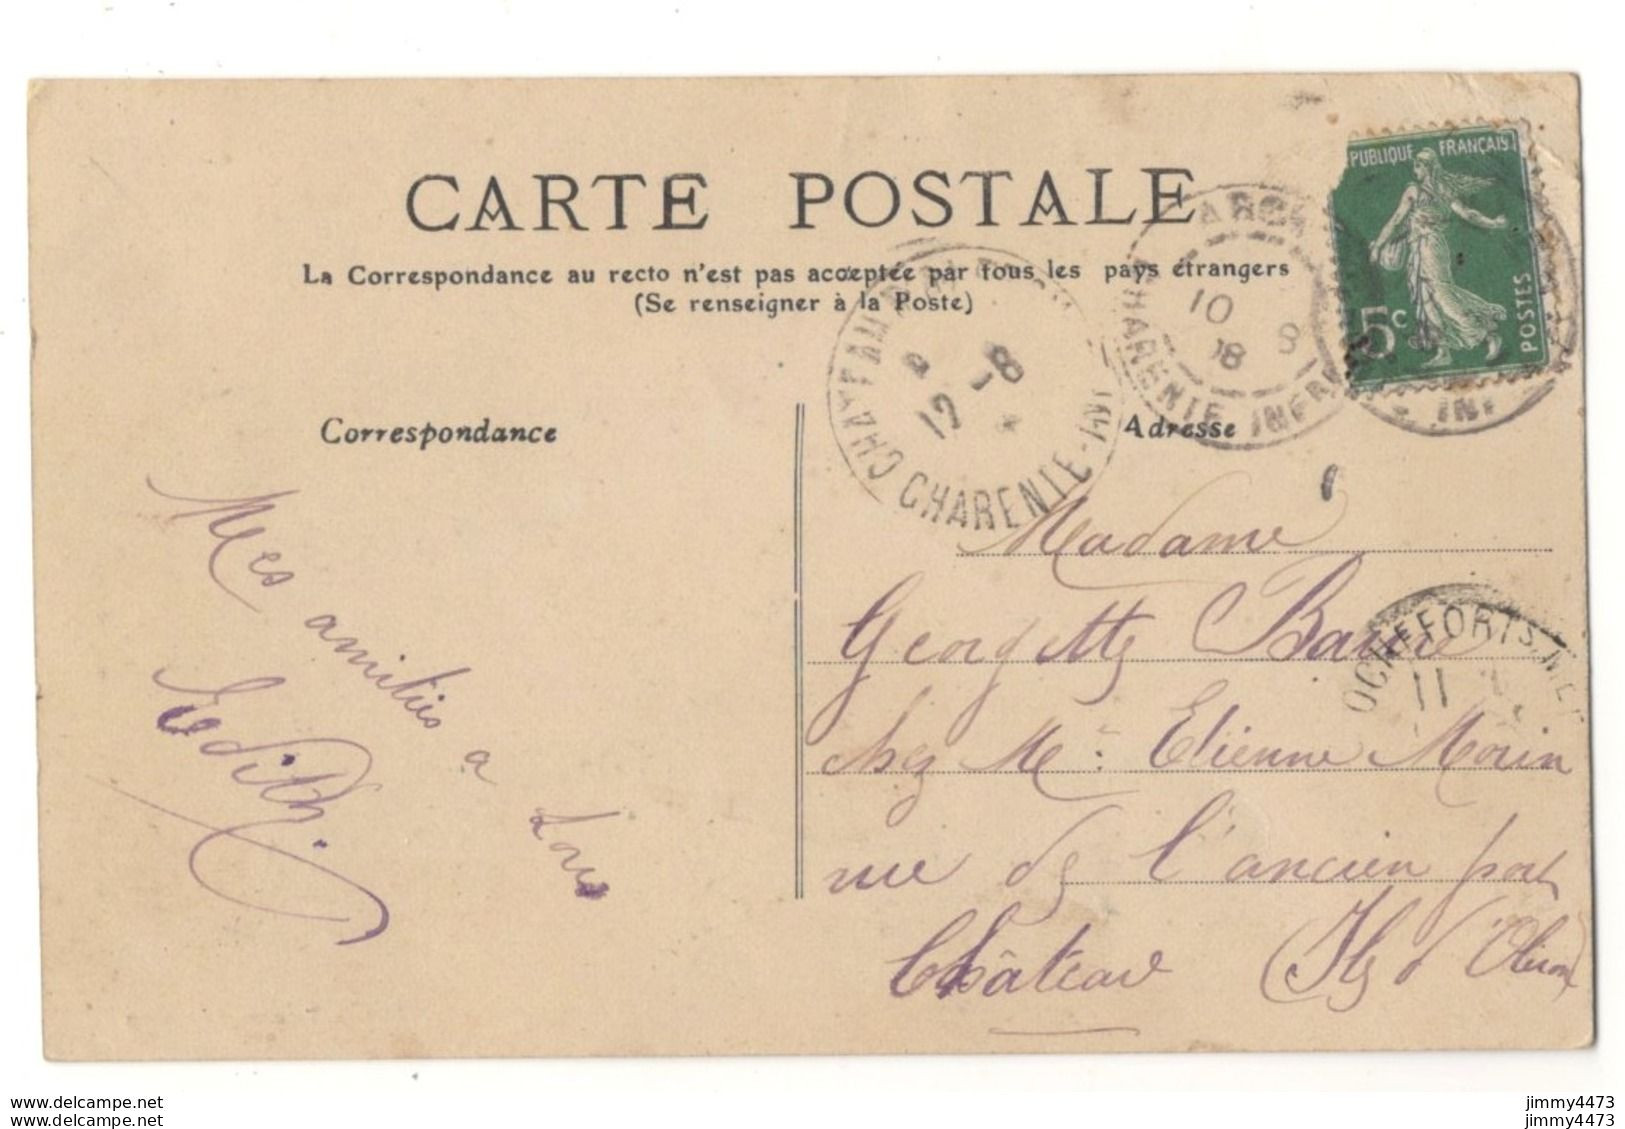 CARTE POSTALE
La Correspondance au recto n'est pas acceptée par tous les pays étrangers
(Se renseigner à la Poste)
PUBLIQUE FRANÇAIS
5c
POSTES
10 8
08
CHARENTE INFRE
8
12
CHARENTE-INF
INF
Correspondance
Adresse
Mes amitiés à
Edith.
Madame
Georgette
chez Mr Etienne Morin
rue de l'ancien port
Château (Ile d'Oléron)
OCHEFFORT S. MER
11
www.delcampe.net
www.delcampe.net
jimmy4473
jimmy4473